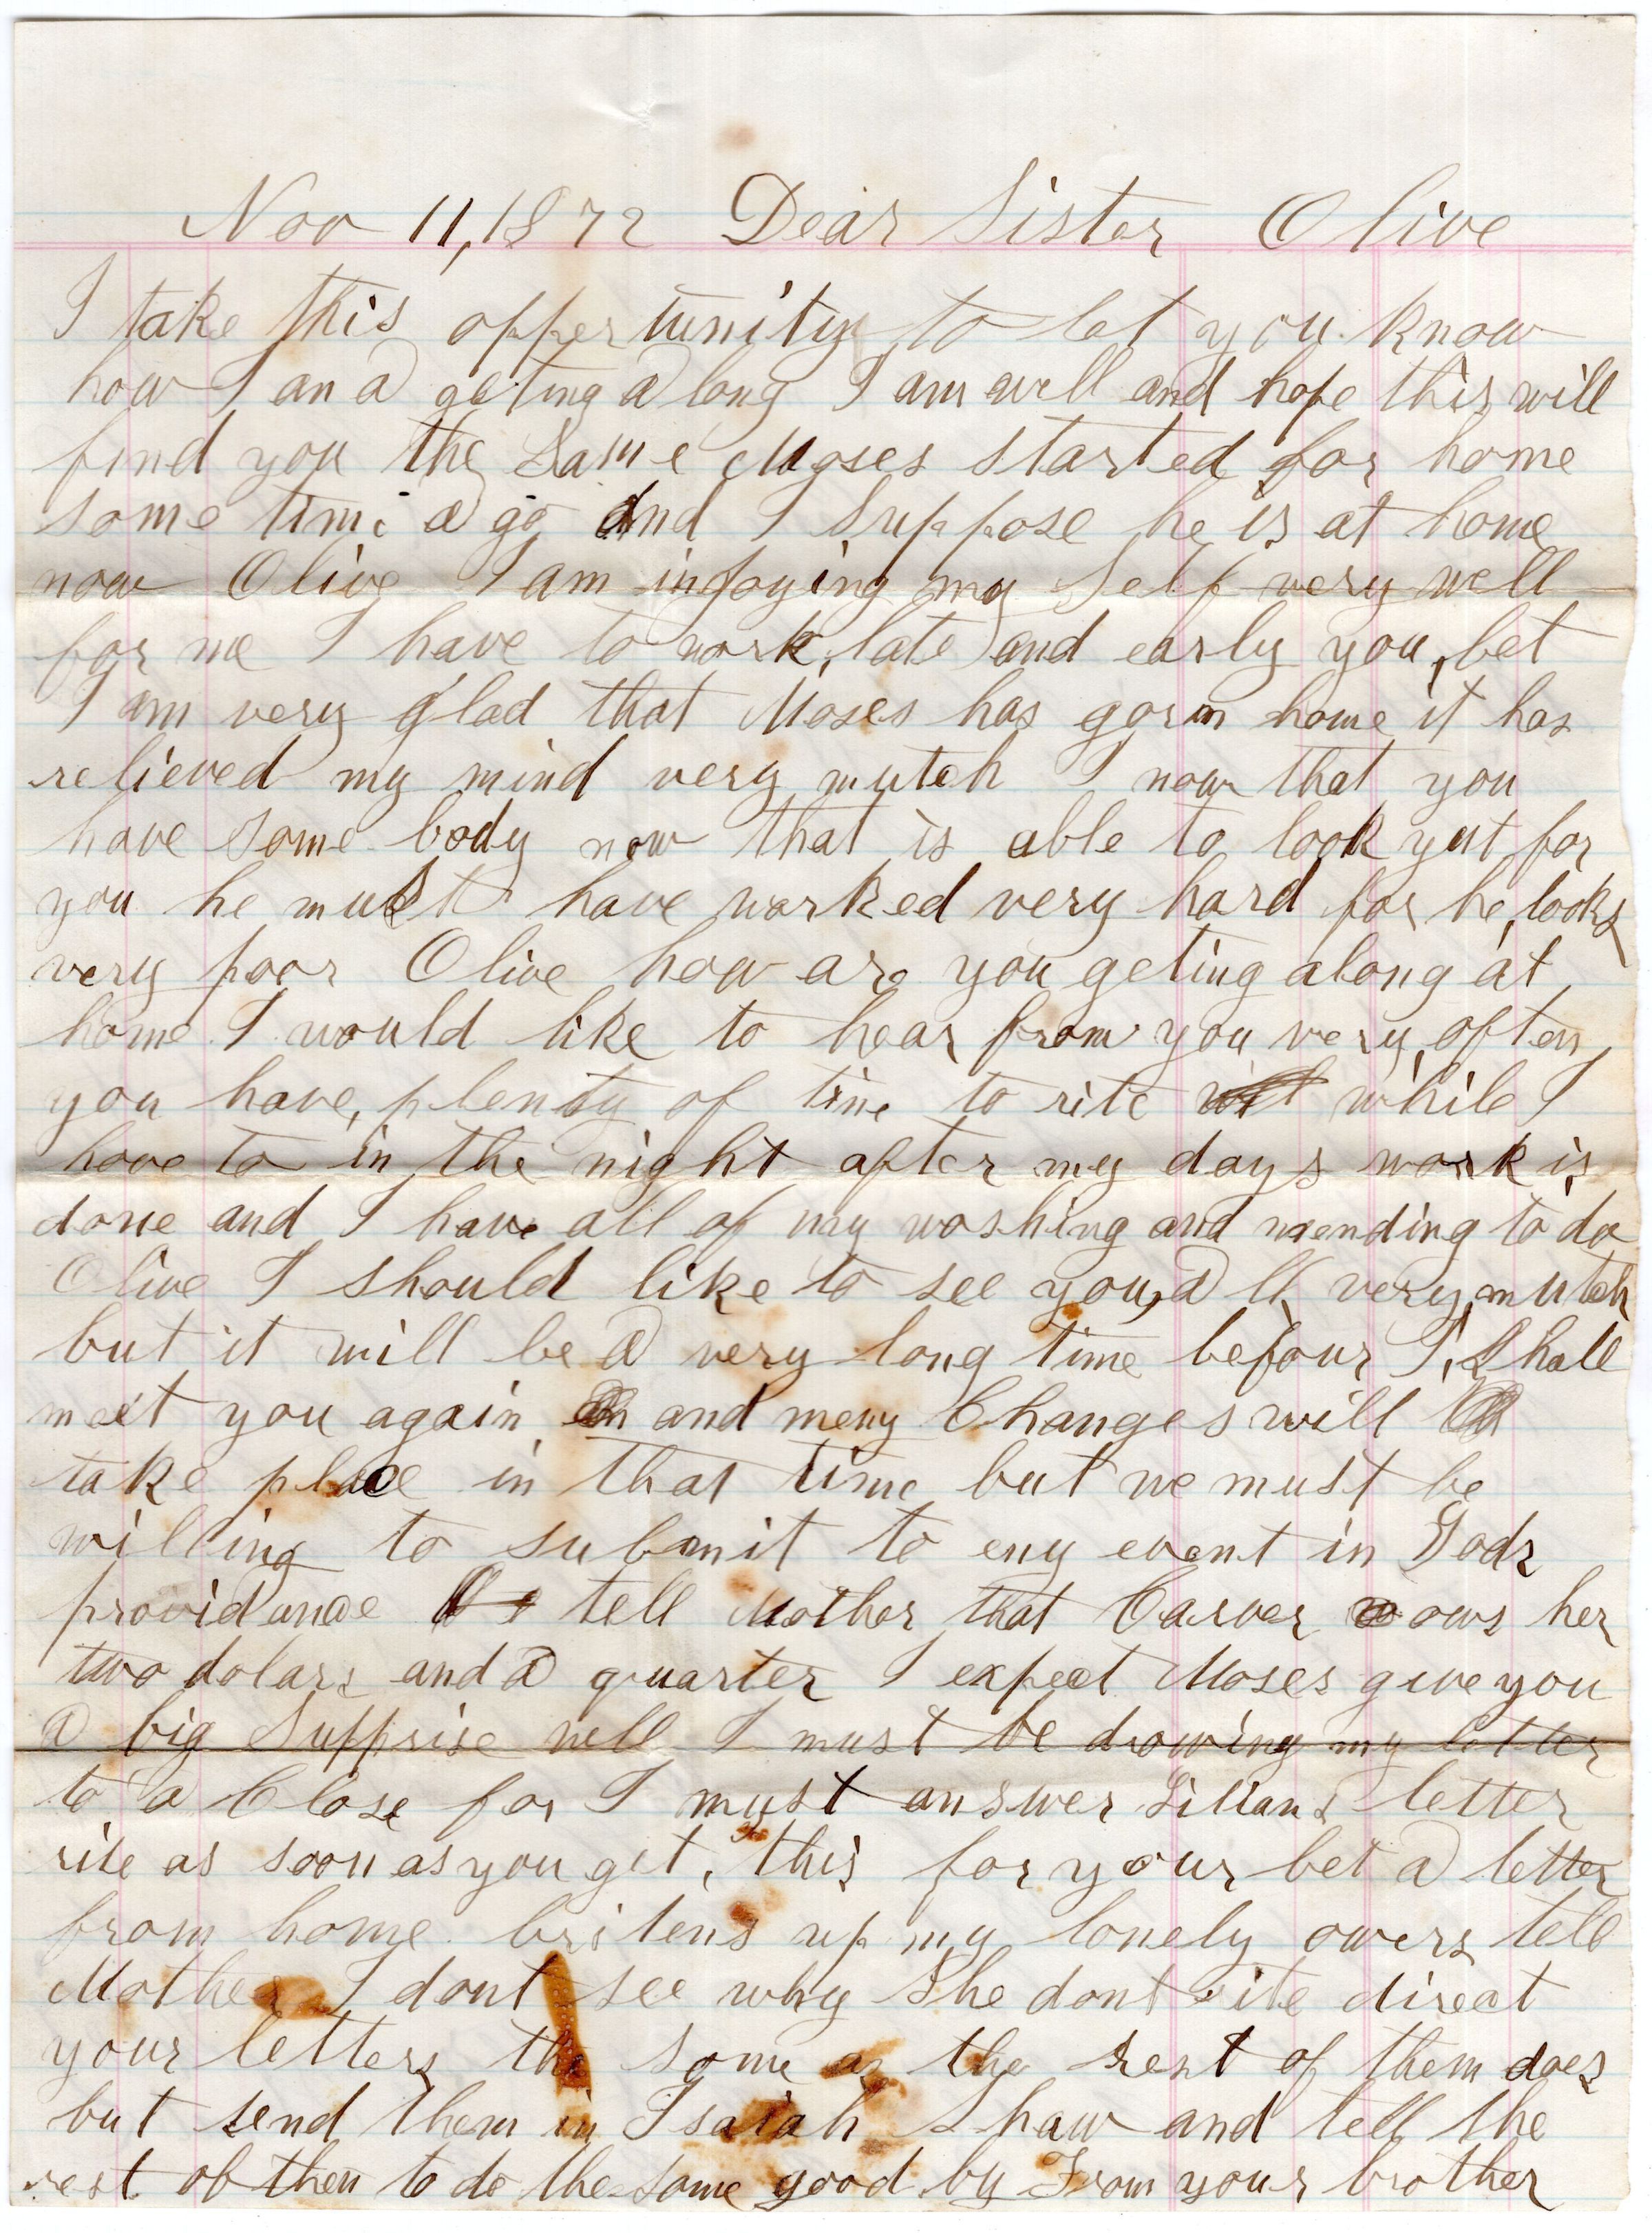 Nov 11, 1872 Dear Sister Olive
I take this oppertunity to let you know
how I an a geting a long I am well and hope this will
find you the Same Moses started for home
some time a go and I Suppose he is at home
now Olive I am injoying my Self very well
for me I have to work late and early you bet
I am very glad that Moses has gorn home it has
relieved my mind very mutch I now that you
have some body now that is able to look yut for
you he must have worked very hard for he looks
very poor Olive how are you geting along at
home I would like to hear from you very often
you have plenty of time to rite while I
have to in the night after my days work is
done and I have all of my washing and mending to do
Olive I should like to see you a ll very mutch
but it will be a very long time befour I Shall
meet you again and meny Changes will
take place in that time but we must be
willing to submit to eny event in Gods
providance tell Mother that Carver ows her
two dolars and a quarter I expect Moses give you
a big Supprise well I must be drawing my letter
to a Close for I must answer Lilians letter
rite as soon as you get this for your bet a letter
from home britens up my lonely owers tell
Mother I dont see why She dont rite direct
your letters the same as the rest of them does
but send them in Isaiah Shaw and tell the
rest of then to do the same good by From your brother